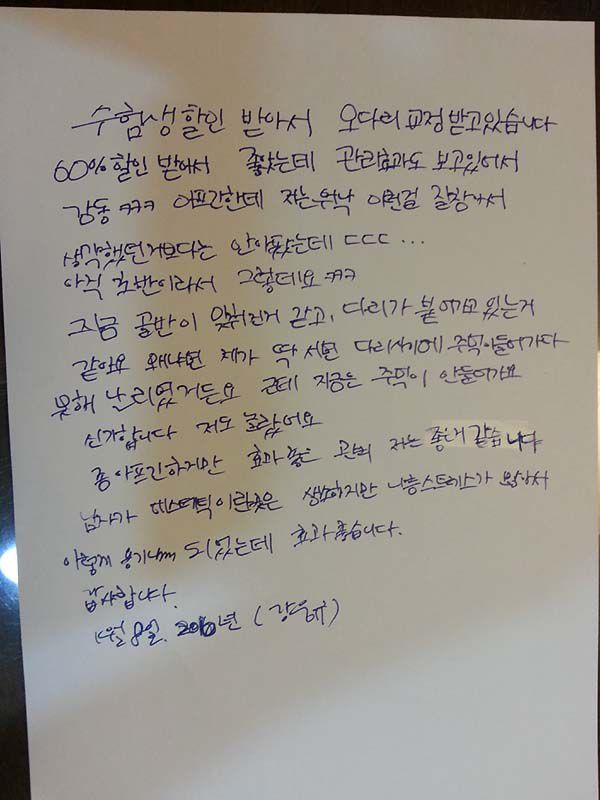 수험생할인 받아서 오다리 교정 받고있습니다
60% 할인 받아서 좋았는데 관리효과도 보고있어서
감동 ㅋㅋㅋ 아프간한데 저는워낙 이런걸 잘참아서
생각했던거보다는 안아팠는데 ㄷㄷㄷ ...
아직 초반이라서 그렇데요 ㅋㅋ
지금 골반이 맞춰진거 같고, 다리가 붙어가고 있는거
같아요 왜냐면 제가 딱 서면 다리사이에 주먹이들어가다
못해 난리였거든요 근데 지금은 주먹이 안들어가요
신기합니다 저도 놀랐어요
좀 아프긴하지만 효과좋은 관리 저는 좋네 같습니다
남자가 에스테틱이란곳은 생소하지만 나름스트레스가 많아서
이렇게 용기내서 되었는데 효과좋습니다.
감사합니다.
8일. 년